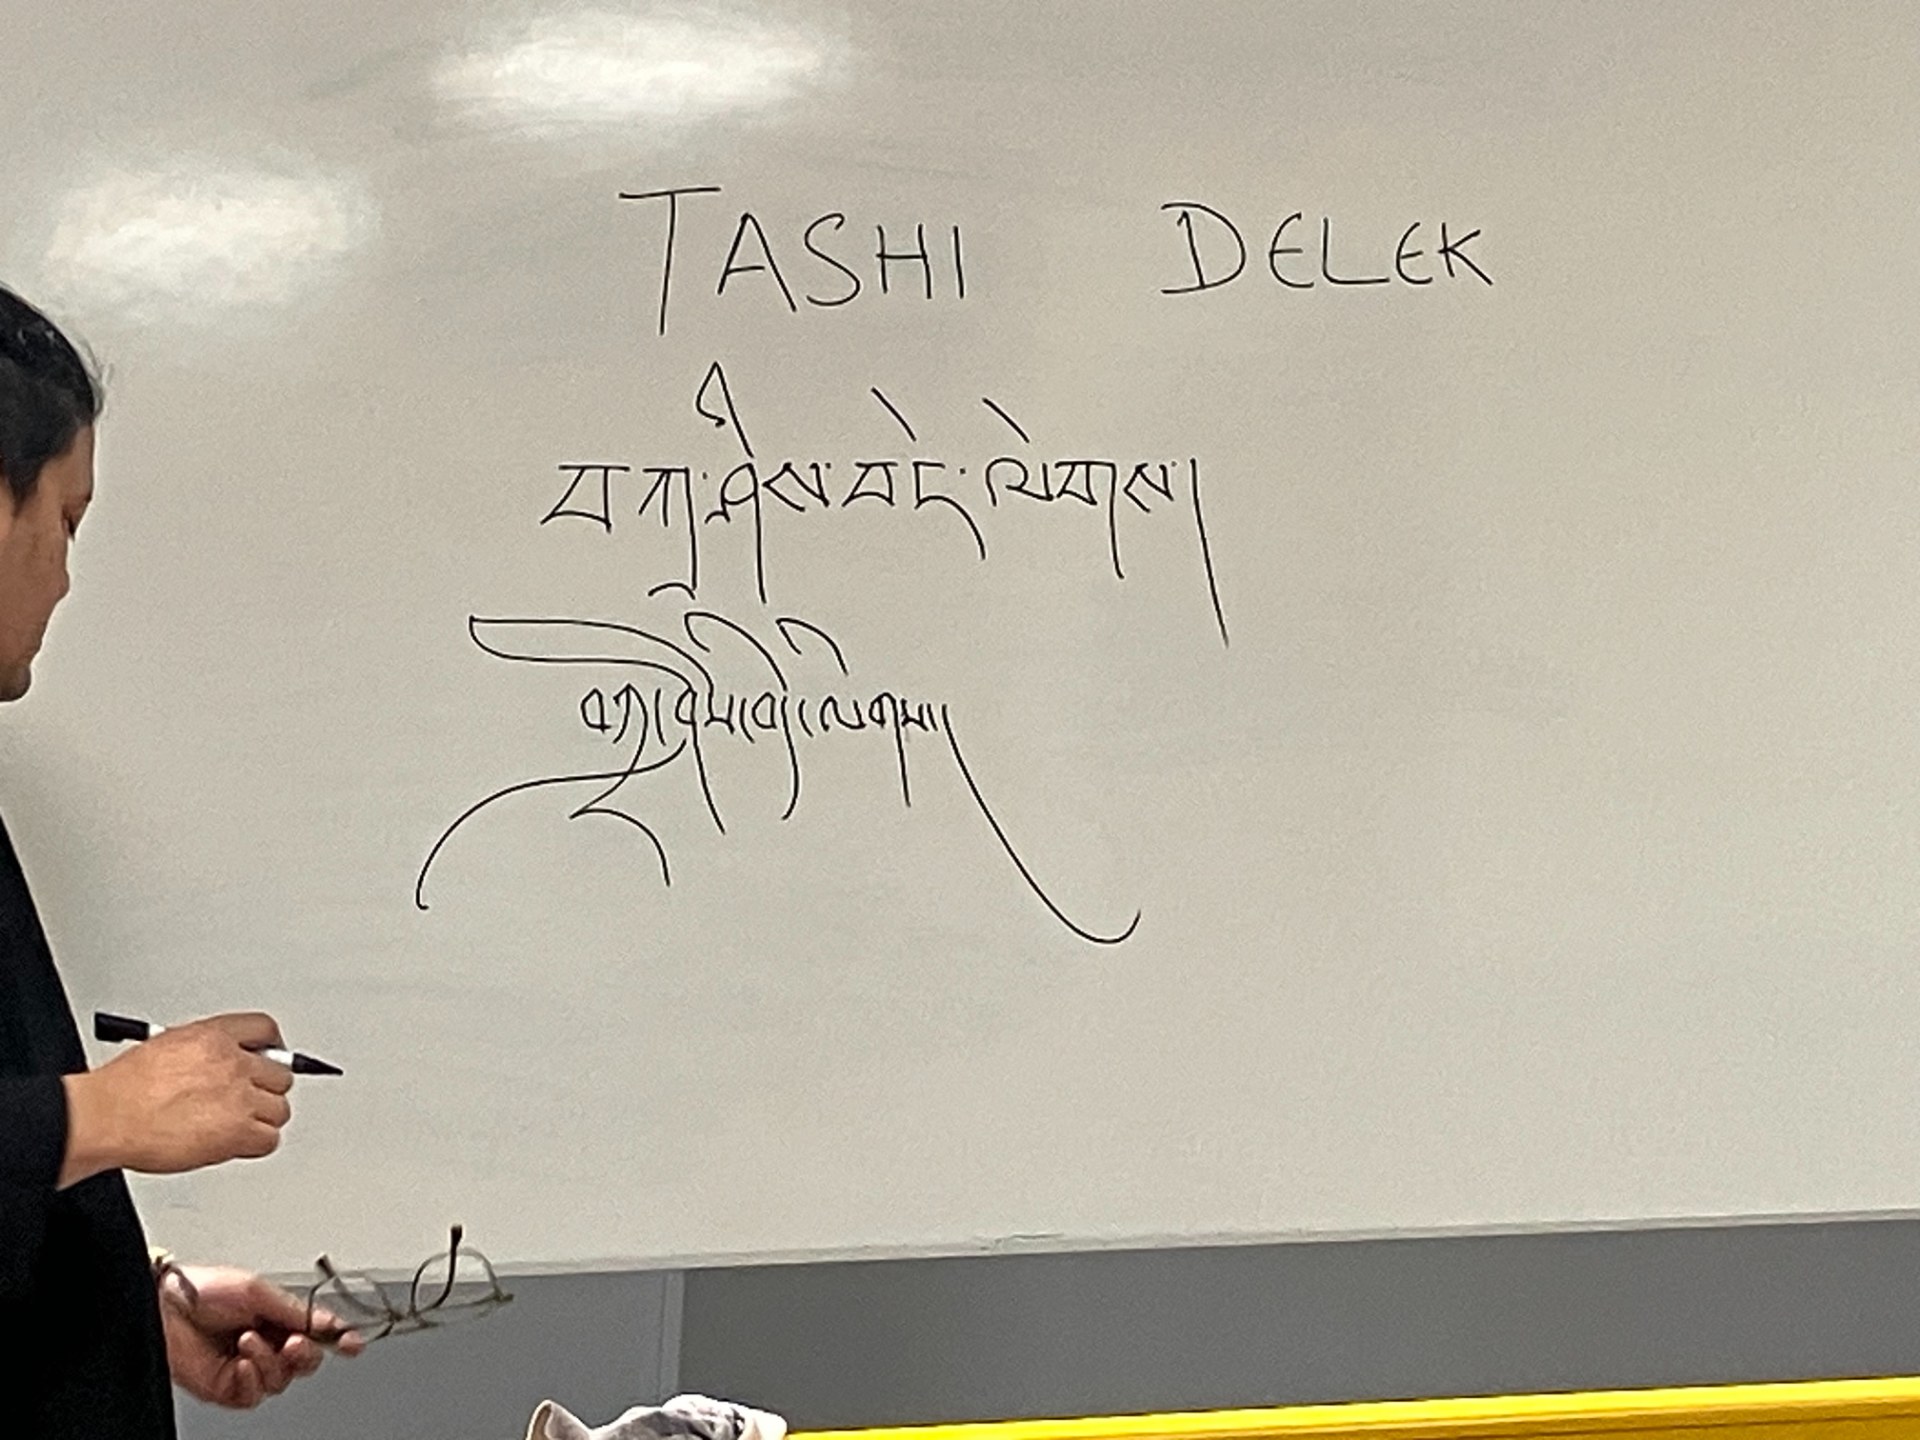 TASHI DELEK
བཀྲ་ཤིས་བདེ་ལེགས།
བཀྲ་ཤིས་བདེ་ལེགས།